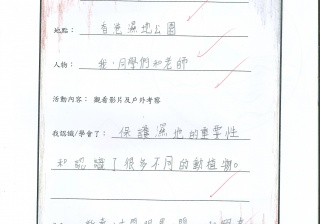 地點： 香港濕地公園
人物： 我、同學們和老師
活動內容： 觀看影片及戶外考察
我認識/學會了： 保護濕地的重要性
和認識了很多不同的動植物。